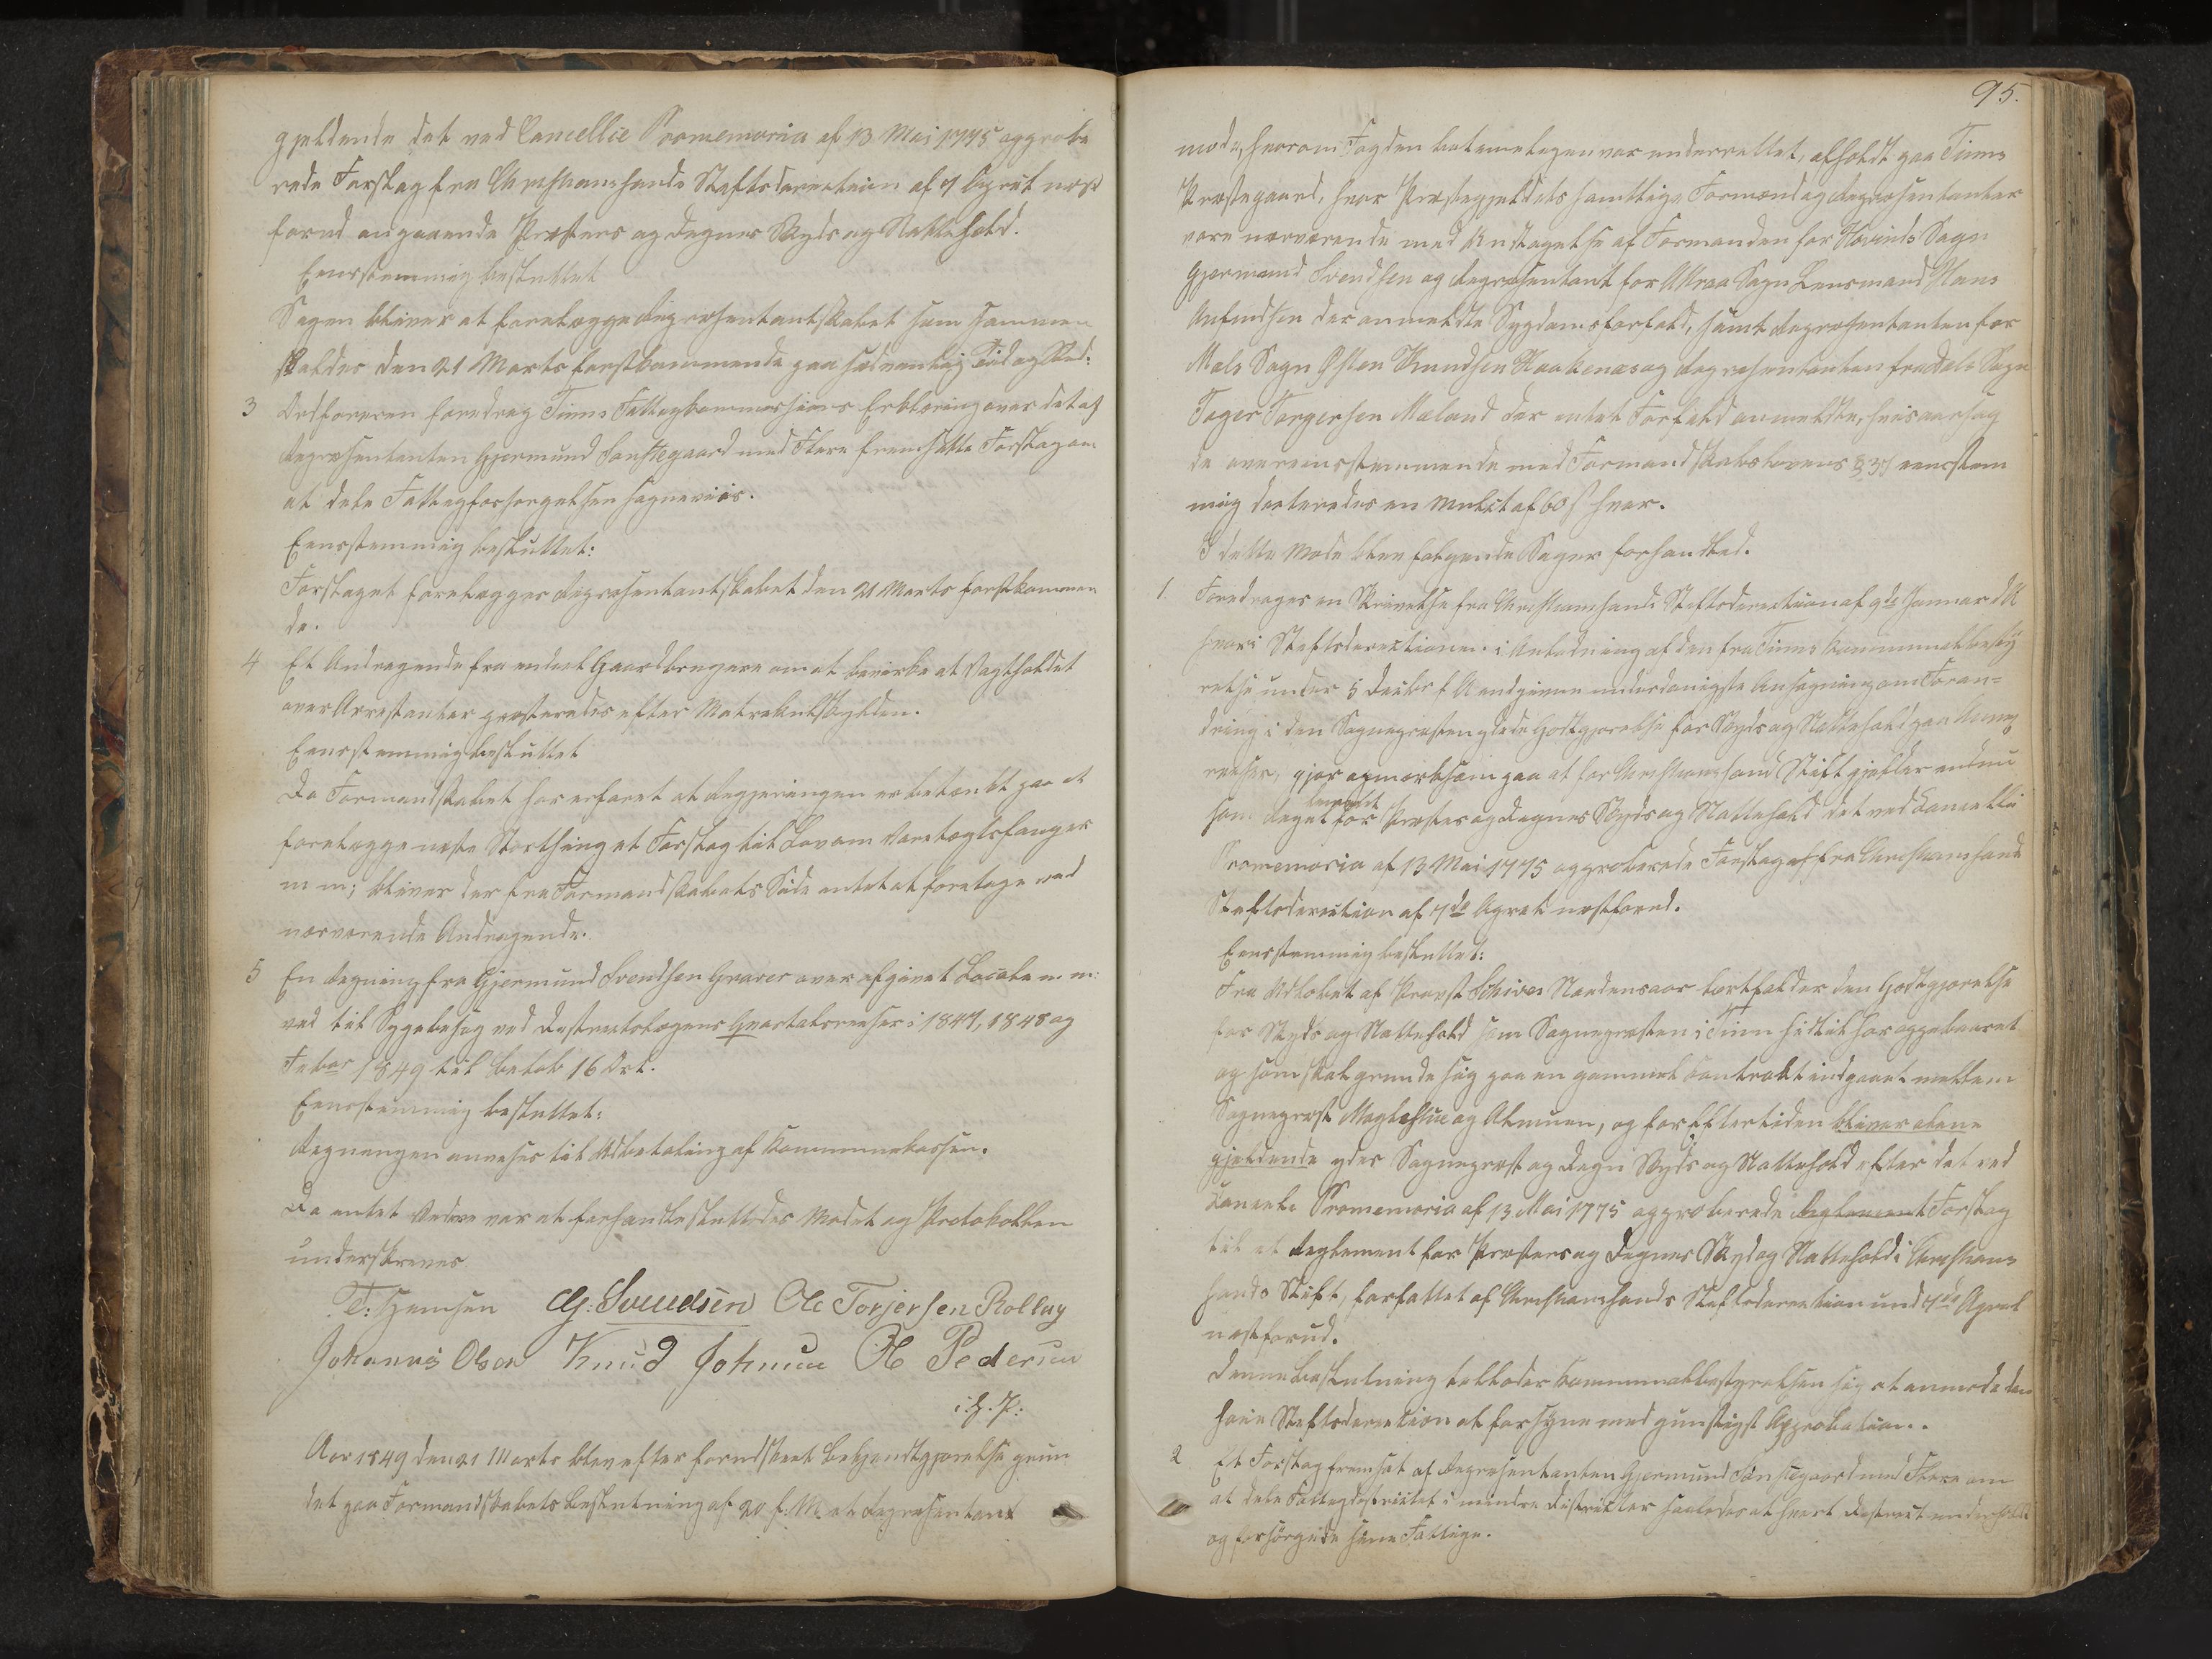 gjeldende det ved Cancellie Promemoria af 13 Mai 1775 approbe
rede Forslag fra Christianssands Stiftsdirection af 7 April næst
forud angaaende Præsters og Degnes Skyds og Nattehold.
Eenstemmig besluttet
Sagen bliver at forelægge Repræsentantskabet som sammen
kaldes den 21 Marts førstkommende paa sædvanlig Tid og Sted.
3 Ordføreren foredrog Tinns Fattigkommissions Erklæring over det af
Repræsentanten Gjermund Sønstegaard med Flere fremsatte Forslag om
at dele Fattigforsørgelsen sogneviis.
Eenstemmig besluttet:
Forslaget forelægges Repræsentantskabet den 21 Marts førstkommen
de.
4 Et Andragende fra endeel Gaardbrugere om at bevirke at Vagtholdet
over Arrestanter præsteredes efter Matrikulskylden.
Eenstemmig besluttet
Da Formandskabet har erfaret at Regjeringen er betænkt paa at
forelægge næste Storthing et Forslag til Lov om Varetægtsfanger
m m; bliver der fra Formandskabets Side intet at foretage ved
nærværende Andragende.
5 En Regning fra Gjermund Svendsen Graver over afgivet Locale m. m:
ved til Sygebesøg ved Destrictslægens Qvartalsreiser i 1847, 1848 og
Febar 1849 til Beløb 16 Ort.
Eenstemmig besluttet:
Regningen anvises til Udbetaling af Kommunekassen.
Da intet Videre var at forhandle sluttedes Mødet og Protokollen
underskreves
G: Svendsen Ole Torjersen Rollag
Johannis Olsen Knud Johnsen Ole Pedersen
i. h. P:
Aar 1849 den 21 Marts blev efter forudskeet Bekjendtgjørelse grun
det paa Formandskabets Beslutning af 20 f. M. et Repræsentant
95.
møde, hvorom Fogden betimeligen var underrettet, afholdt paa Tinns
Præstegaard, hvor Præstegjeldets samtlige Formænd og Repræsentanter
vare nærværende med Undtagelse af Formanden for Hovinds Sogn
Gjermund Svendsen og Repræsentant for Attraa Sogn Lensmand Hans
Anfindsen der anmeldte Sygdomsforfald, samt Repræsentanten for
Mæls Sogn Østen Knudsen Haakenæs og Repræsentanten fra Dals Sogn
Torger Torgersen Mæland der intet Forfald anmeldte, hvisaarsag
de overeensstemmende med Formandskabslovens § 37 eenstem
mig dicteredes en Mulct af 60 s hver.
I dette Møde blev følgende Sager forhandled.
1. Foredroges en Skrivelse fra Christianssands Stiftsdirection af 9de Januar d A
hvori Stiftsdirectionen i Anledning af den fra Tinns Kommunalbesty
relse under 5 Decbr f A indgivne underdanigste Ansøgning om Foran=
dring i den Sognepræsten ydede Godtgjørelse for Skyds og Nattehold paa Annex
reiser, gjør opmærksom paa at for Christianssands Stift gjelder endnu
som Reglement for Præsters og Degnes Skyds og Nattehold det ved Cancelli
Promemoria af 13 Mai 1775 approberede Forslag af fra Christianssands
Stiftsdirection af 7de April næstforud.
Eenstemmig besluttet:
Fra Udløbet af Provst Schives Naadensaar bortfalder den Godtgjørelse
for Skyds og Nattehold som Sognepræsten i Tinn hidtil har oppebaaret
og som skal grunde sig paa en gammel Contrakt indgaaet mellem
Sognepræst Maglestue og Almuen, og for Eftertiden bliver alene
gjeldende ydes Sognepræst og Degn Skyds og Nattehold efter det ved
Cancelli Promemoria af 13 Mai 1775 approberede Reglement Forslag
til et Reglement for Præsters og Degnes Skyds og Nattehold i Christians
sands Stift, forfattet af Christianssands Stiftsdirection und 7de April
næstforud.
Denne Beslutning tillader Kommunalbestyrelsen sig at anmode den
høie Stiftsdirection at forsyne med gunstigst Approbation.
2 Et Forslag fremsat af Repræsentanten Gjermund Sønstegaard med Flere om
at dele Fattigdistrictet i mindre Districter saaledes at hvert District underholdt
og forsørgede sine Fattige.